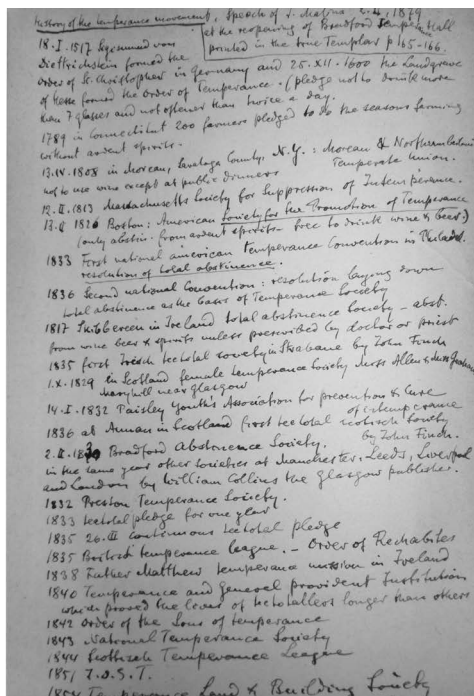 History of the temperance movement, Speech of J. Malins 1879
at the reopening of Bradford Temp. Hall
printed in the true Templar p 165-166.
18.I.1517 Sigismund von
Dietrichstein formed the
order of St. Christopher in Germany and 25.XII.1600 the Landgrave
of Hesse formed the Order of Temperance. (pledge not to drink more
than 7 glasses and not oftener than twice a day.
1789 in Connecticut 200 farmers pledged to do the seasons farming
without ardent spirits.
13.IV.1808 in Moreau, Saratoga County, N.Y.: Moreau & Northumberland
Temperate Union.
not to use wine except at public dinners
12.II.1813 Massachusetts Society for Suppression of Intemperance.
13.II 1826 Boston: American Society for the Promotion of Temperance
(only abstin. from ardent spirits - free to drink wine & beer.)
1833 First national american Temperance Convention in Philad.
resolution of total abstinence.
1836 Second national Convention: resolution laying down
total abstinence as the basis of Temperance Society
1817 Skibbereen in Ireland total abstinence Society - abst.
from wine beer & spirits unless prescribed by doctor or priest
1835 first Irish teetotal society in Strabane by John Finch
1.X.1829 in Scotland female temperance Society Miss Allen & Miss Graham
Maryhill near Glasgow
14.I.1832 Paisley Youth's Association for prevention & Cure
of intemperance
1836 at Annan in Scotland first teetotal scotisch Society
by John Finch.
2.II.1830 Bradford Abstinence Society.
in the same year other societies at Manchester, Leeds, Liverpool
and London by William Collins the glasgow publisher.
1832 Preston Temperance Society.
1833 teetotal pledge for one year
1835 26.III continuous teetotal pledge
1835 British temperance league. - Order of Rechabites
1838 Father Matthew temperance mission in Ireland
1840 Temperance and general provident Institution
which proved the lives of teetotallers longer than others
1842 Order of the Sons of temperance
1843 National Temperance Society
1844 Scottisch Temperance League
1851 I.O.G.T.
1854 Temperance Land & Building Society